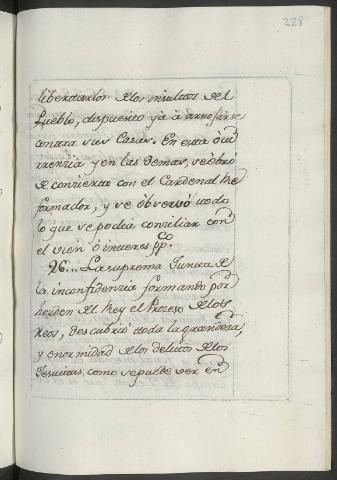 228
libertarlos de los insultos del
Pueblo, dispuesto ya à arrojarse
contra sus Casas. En esta òcu
rrencia y en las demas, se òbró
de concierto con el Cardenal Re
formador, y se òbservó todo
lo que se podia conciliar con
el bien ò interes pp.co
26... La suprema Junta de
la inconfidencia formando por
horden del Rey el Proceso de los
Reos, descubrió toda la grandeza,
y enormidad de los delitos de los
Jesuitas, como se puede ver en